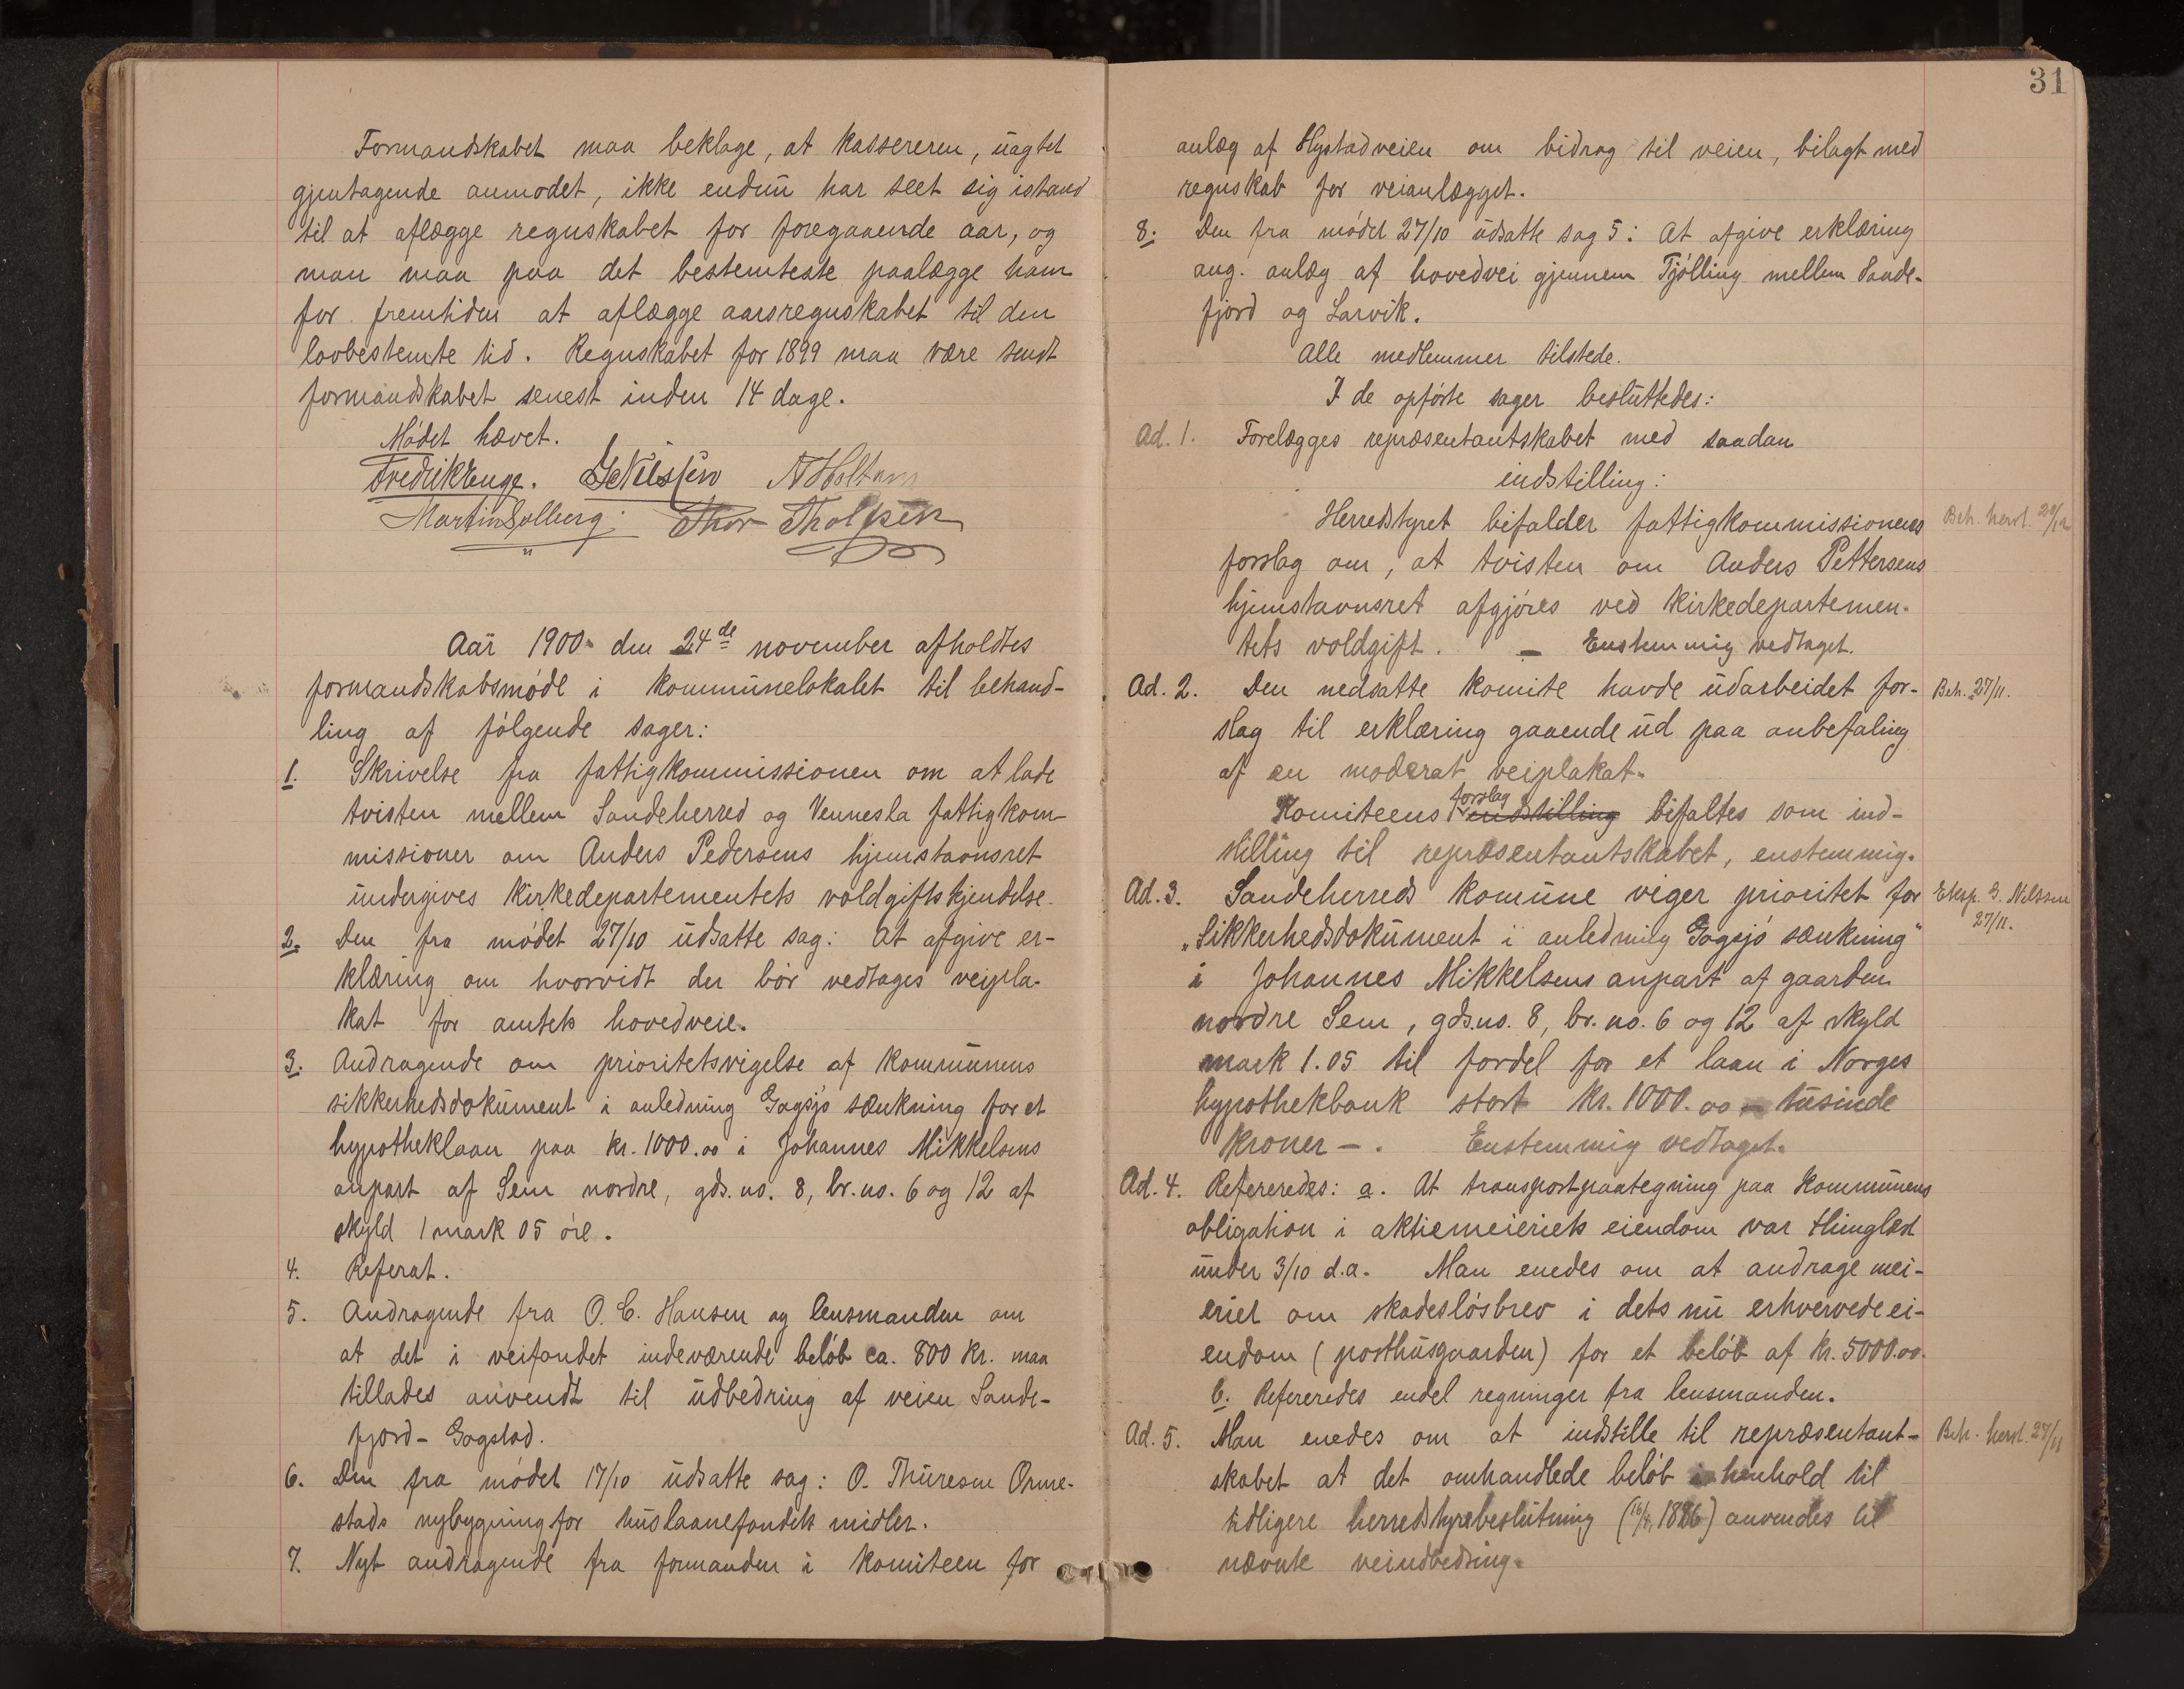 Formandskabet maa beklage, at kassereren, uagtet
gjentagende anmodet, ikke endnu har seet sig istand
til at aflægge regnskabet for foregaaende aar, og
man maa paa det bestemteste paalægge ham
for fremtiden at aflægge aarsregnskabet til den
lovbestemte tid. Regnskabet for 1899 maa være sendt
formandskabet senest inden 14 dage.
Mødet hævet.
Fredrik Enge. Nilssen A Holtan
Martin Solberg. Thor Tholfsen
Aar 1900 den 24de november afholdtes
formandskabsmøde i kommunelokalet til behand-
ling af følgende sager:
1. Skrivelse fra fattigkommissionen om at lade
tvisten mellem Sandeherred og Vennesla fattigkom-
missioner om Anders Pedersens hjemstavnsret
undergives kirkedepartementets voldgiftskjendelse.
2. Den fra mødet 27/10 udsatte sag: At afgive er-
klæring om hvorvidt der bør vedtages veipla-
kat for amtets hovedveie.
3. Andragende om prioritetsvigelse af kommunens
sikkerhedsdokument i anledning Gogsjø sænkning for et
hypotheklaan paa kr. 1000.00 i Johannes Mikkelsens
anpart af Sem nordre, gds. no. 8, br. no. 6 og 12 af
skyld 1 mark 05 øre.
4. Referat.
5. Andragende fra O. C. Hansen og lensmanden om
at det i veifondet indeværende beløb ca. 800 kr. maa
tillades anvendt til udbedring af veien Sande-
fjord - Gogstad.
6. Den fra mødet 17/10 udsatte sag: O. Thuresen Orme-
stads nybygning for huslaanefondets midler.
7. Nyt andragende fra formanden i komiteen for
31
anlæg af Hystadveien om bidrag til veien, bilagt med
regnskab for veianlægget.
8. Den fra mødet 27/10 udsatte sag 5: At afgive erklæring
ang. anlæg af hovedvei gjennem Tjølling mellem Sande-
fjord og Larvik.
Alle medlemmer tilstede.
I de opførte sager besluttedes:
Ad. 1. Forelægges repræsentantskabet med saadan
indstilling:
Herredstyret bifalder fattigkommissionens
Beh. herst. 28/12
forslag om, at tvisten om Anders Pettersens
hjemstavnsret afgjøres ved kirkedepartemen-
tets voldgift. - Enstemmig vedtaget.
Ad. 2. Den nedsatte komite havde udarbeidet for-
Beh. 27/11.
slag til erklæring gaaende ud paa anbefaling
af en moderat veiplakat.
forslag
Komiteens indstilling bifaltes som ind-
stilling til repræsentantskabet, enstemmig.
Ad. 3. Sandeherreds komune viger prioritet for
Eksp. G. Nilssen
27/11.
"Sikkerhedsdokument i anledning Gogsjø sænkning"
i Johannes Mikkelsens anpart af gaarden
nordre Sem, gds.no. 8, br. no. 6 og 12 af skyld
mark 1.05 til fordel for et laan i Norges
hypothekbank stort kr. 1000.00 - tusinde
kroner -. Enstemmig vedtaget.
Ad. 4. Refereredes: a. At transportpaategning paa kommunens
obligation i aktiemeieriets eiendom var thinglæst
under 3/10 d.a. Man enedes om at andrage mei-
eriet om skadesløsbrev i dets nu erhvervede ei-
endom (posthusgaarden) for et beløb af kr. 5000.00.
b. Refereredes endel regninger fra lensmanden.
Ad. 5. Man enedes om at indstille til repræsentant-
Beh. herst. 27/11
skabet at det omhandlede beløb i henhold til
tidligere herredstyrebeslutning anvendes til
nævnte veiudbedring.